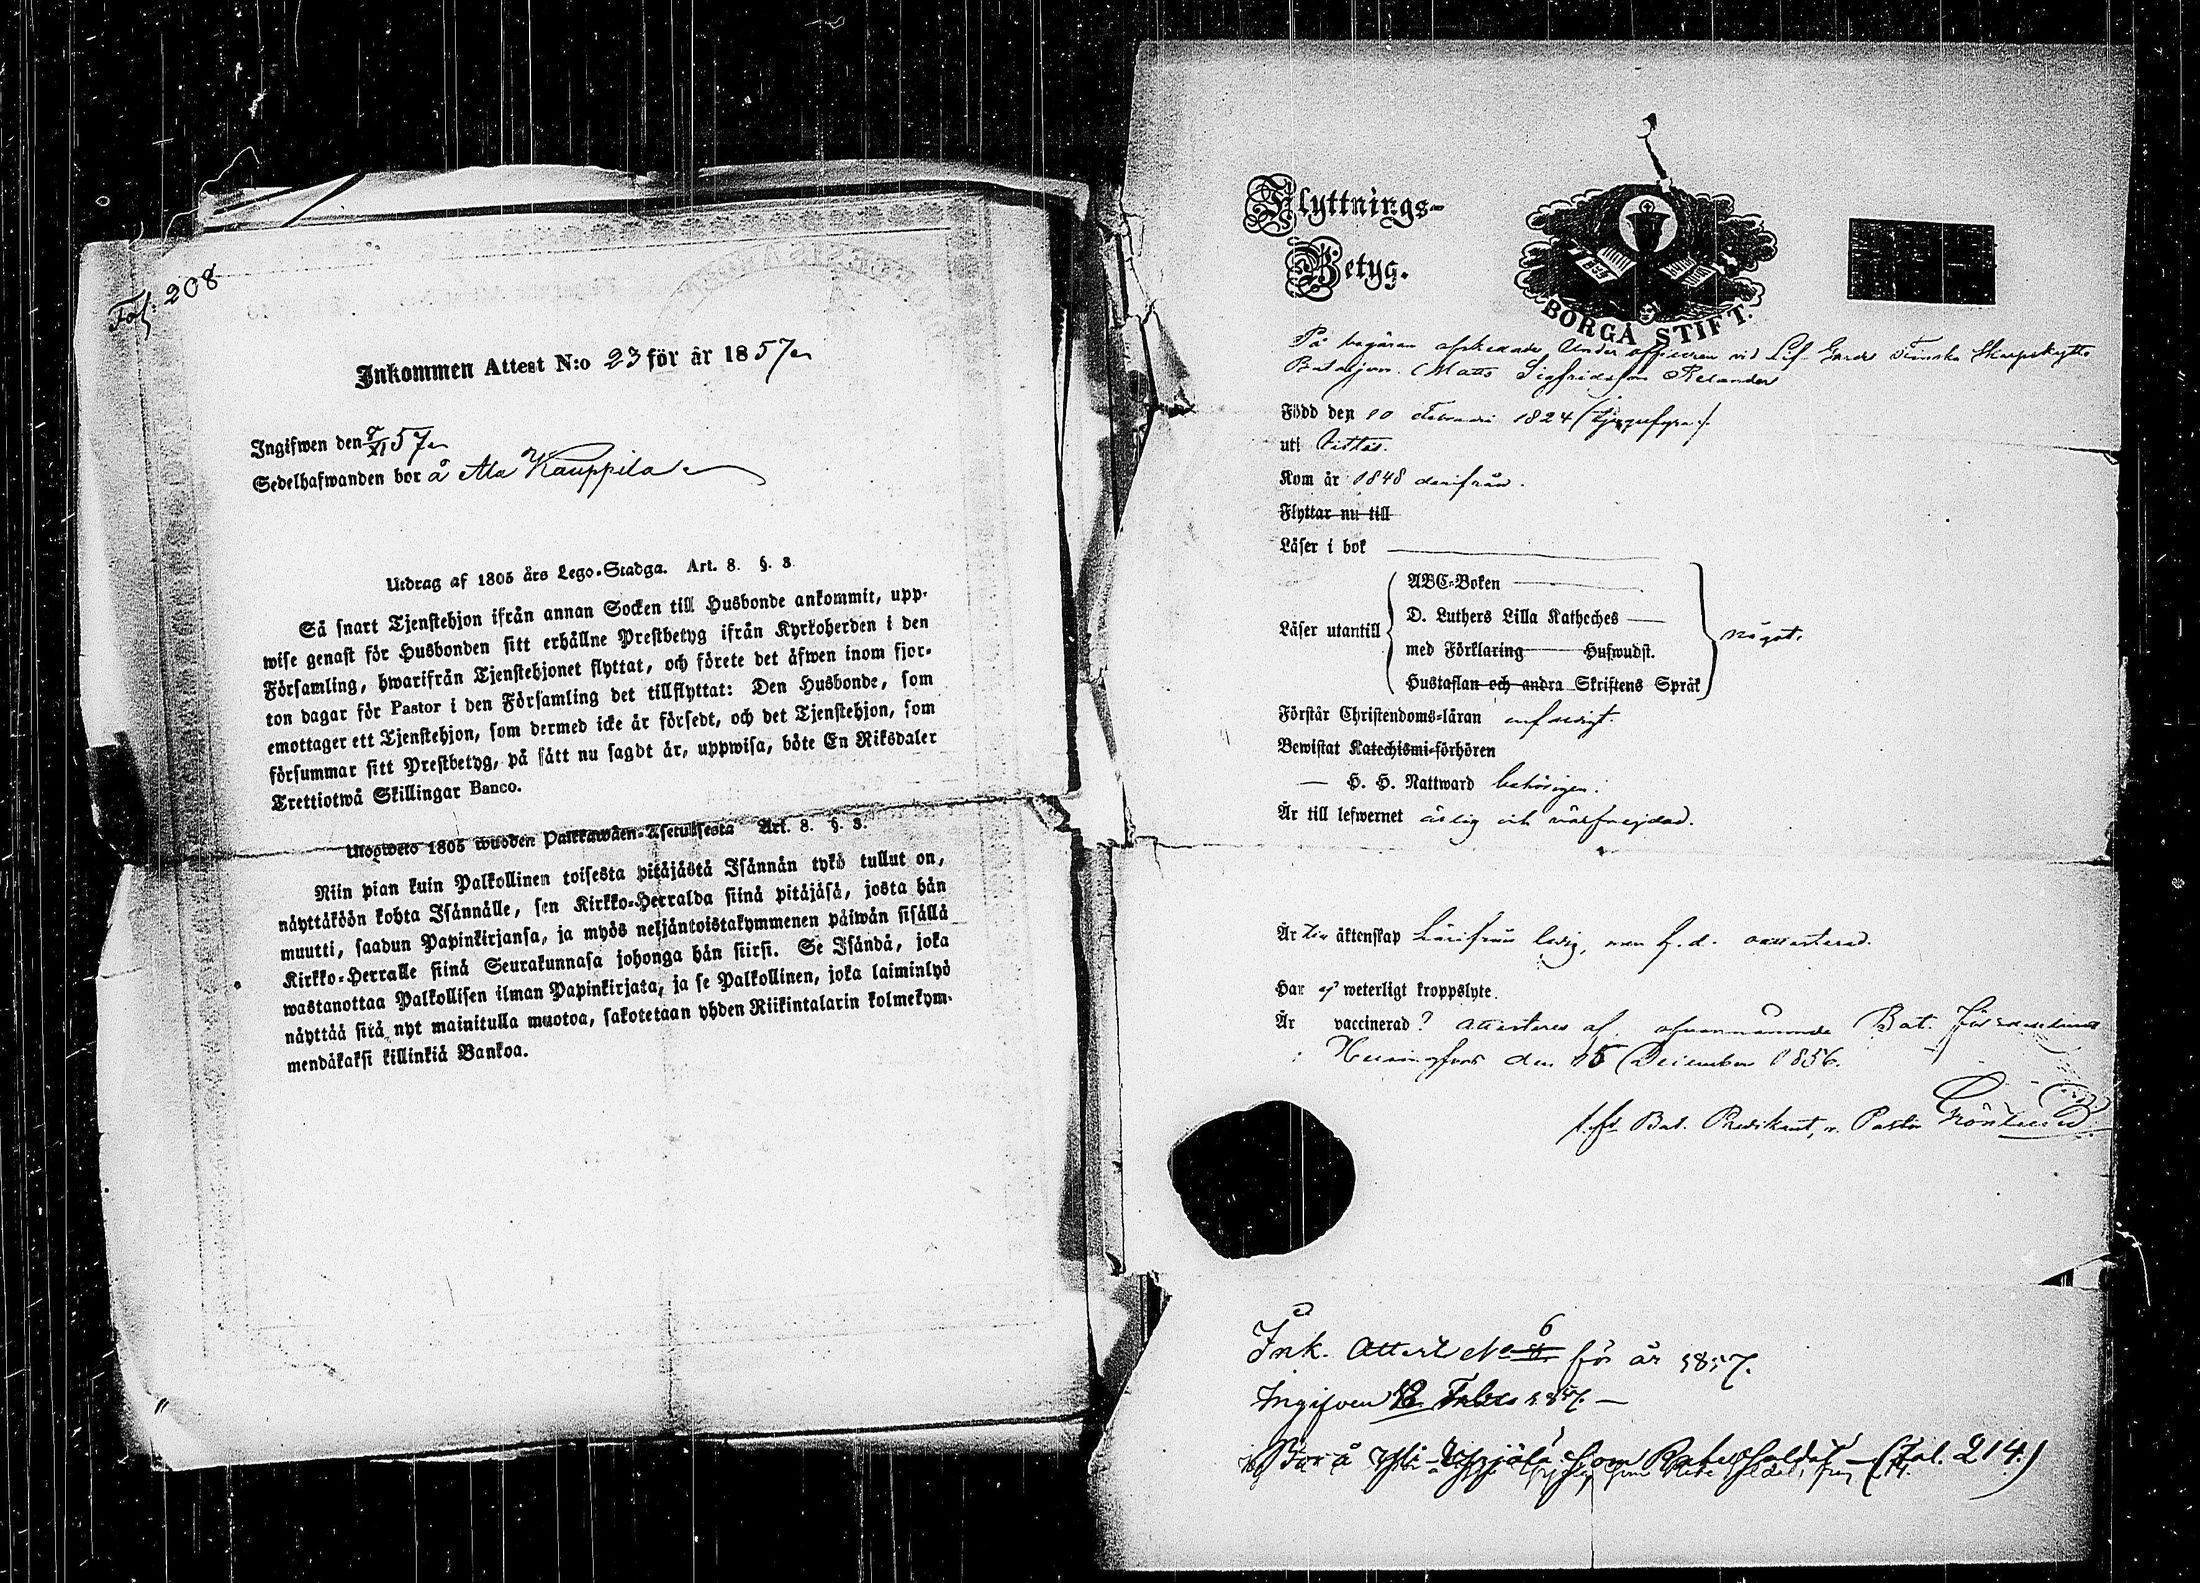 Fol. 208
Inkommen Attest N:o 23 för år 1857
Ingifwen den 7/XI 57
Sedelhafwanden bor å Ala Kauppila
Utdrag af 1805 års Lego-Stadga. Art. 8. §. 3.
Så snart Tjenstehjon ifrån annan Socken till Husbonde ankommit, upp-
wise genast för Husbonden sitt erhållne Prestbetyg ifrån Kyrkoherden i den
Församling, hwarifrån Tjenstehjonet flyttat, och förete det äfwen inom fjor-
ton dagar för Pastor i den Församling det tillflyttat: Den Husbonde, som
emottager ett Tjenstehjon, som dermed icke är försedt, och det Tjenstehjon, som
försummar sitt Prestbetyg, på sätt nu sagdt är, uppwisa, böte En Riksdaler
Trettiotwå Skillingar Banco.
Ulosweto 1805 wuoden Palkkawäen-Asetuksesta Art. 8. §. 3.
Niin pian kuin Palkollinen toisesta pitäjästä Isännän tykö tullut on,
näyttäköön kohta Isännälle, sen Kirkko-Herralda siinä pitäjäsä, josta hän
muutti, saadun Papinkirjansa, ja myös neljäntoistakymmenen päiwän sisällä
Kirkko-Herralle siinä Seurakunnasa johonga hän siirsi. Se Isändä, joka
wastanottaa Palkollisen ilman Papinkirjata, ja se Palkollinen, joka laiminlyö
näyttää sitä nyt mainitulla muotoa, sakotetaan yhden Riikintalarin kolmekym-
mendäkaksi killinkiä Bankoa.
Flyttnings-
Betyg.
BORGÅ STIFT.
På begäran afskedade Under officeren vid Lif Gardes Finska Skarpskytte
Bataljon Matts Sigfridsson Relander
Född den 10 Februari 1824
uti
Kom år 1848 derifrån.
Flyttar nu till
Läser i bok
ABC-Boken
D. Luthers Lilla Katheches
Läser utantill
något.
med Förklaring Hufwudst.
Hustaflan och andra Skriftens Språk
Förstår Christendoms-läran enfaldigt.
Bewistat Katechismi-förhören
H. H. Nattward behörigen.
Är till lefwernet ärlig och välfrejdad.
Är till äktenskap härifrån ledig, men
Har ej weterligt kroppslyte.
Är vaccinerad? Attesteras af ofvannämnde Bat. församling
Helsingfors den 15 December 1856.
Bat. Predikant, v. Pastor Grönlund
Ink. Attest No 6 för år 1857.
Ingifven 18 Febr. 1857.
Bor å Yli som Rote Soldat (Fol. 214.)